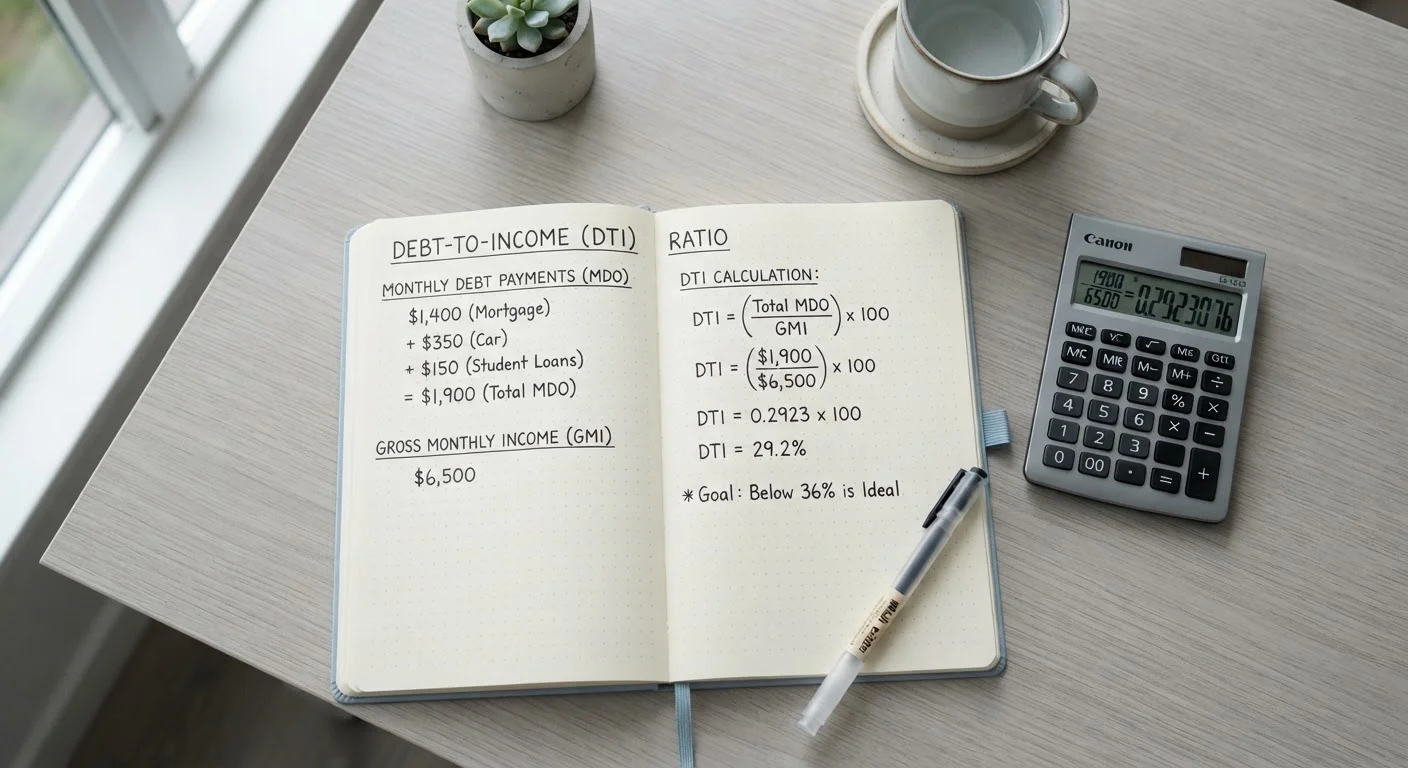 DEBT-TO-INCOME (DTI) RATIO
MONTHLY DEBT PAYMENTS (MDO)
$1,400 (Mortgage)
+ $350 (Car)
+ $150 (Student Loans)
= $1,900 (Total MDO)
GROSS MONTHLY INCOME (GMI)
$6,500
DTI CALCULATION:
DTI = (Total MDO / GMI) x 100
DTI = ($1,900 / $6,500) x 100
DTI = 0.2923 x 100
DTI = 29.2%
* Goal: Below 36% is Ideal
Canon
7 8 9 % ×
4 5 6 × −
1 2 3
0 00 · = +